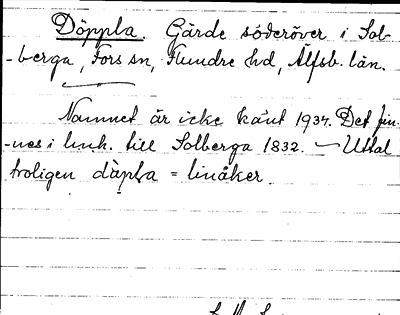 Döppla. Gärde söderöver i Sol-
-berga, Fors sn, Flundre hd, Älfsb. län.
Namnet är icke känt 1934. Det fin-
-nes i link. till Solberga 1832. — Uttal
troligen däpla = linåker.